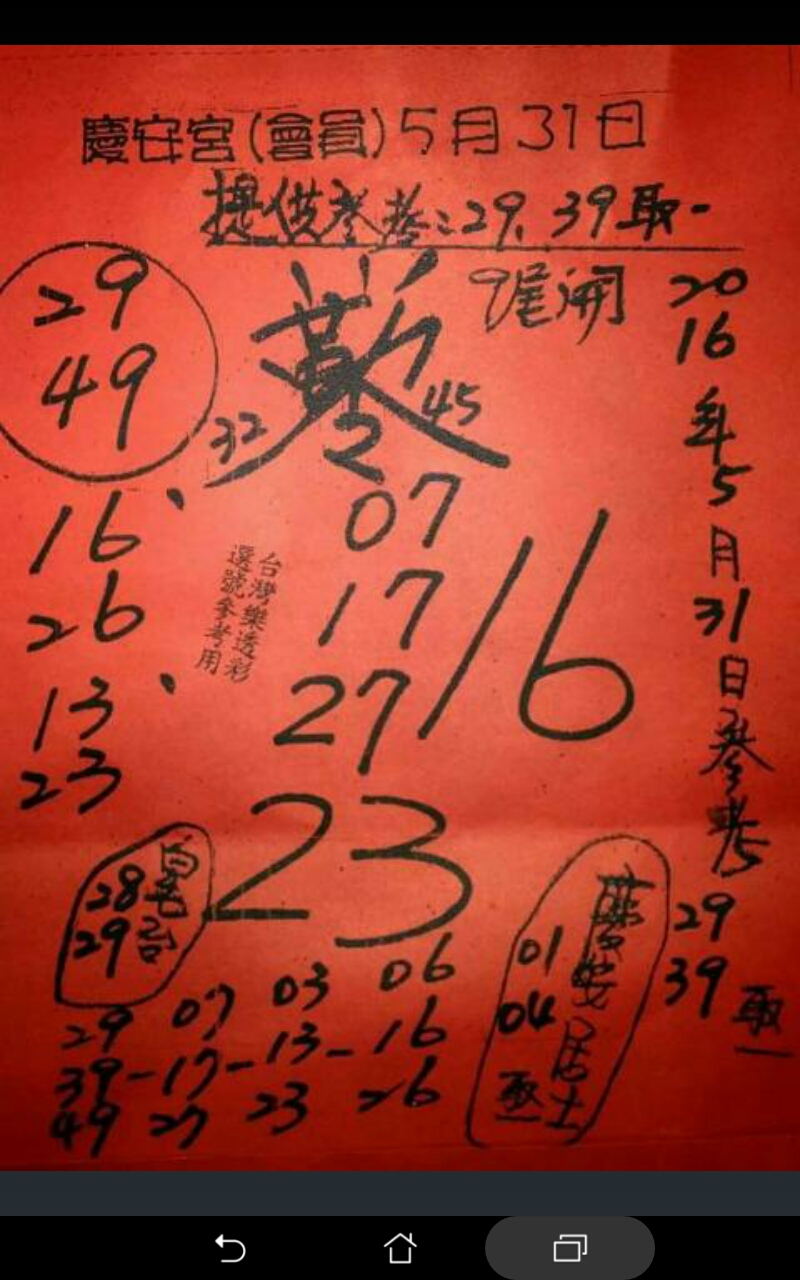 慶安宮(會員)5月31日
提供參考:29、39取一
9尾開
29
49
32
45
2
07
17
27
/6
16、
26
13、
23
台灣樂透彩
選號參考用
23
28
29
2016年5月31日參考
29
39
取一
慶安居士
01
04
取一
29 07 03 06
39-17-13-16
49 27 23 26